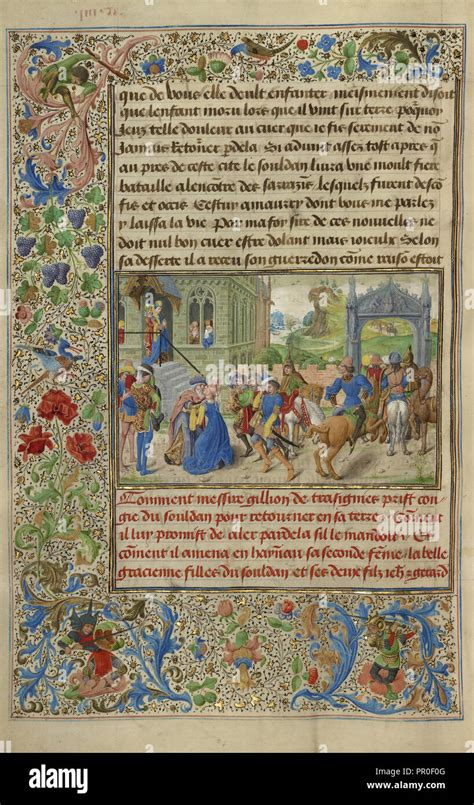 que de vous elle deult enfanter meismement disoit
que lenfant moru lors que il vint sur terre pequoy
Jeus telle douleur au cuer que ie fis serement de no
Jamais Retorner p dela Si aduint assez tost apres q
au pres de ceste cite le souldan liura vne moult fiere
bataille alencontre des sarrazins lesquelz furent descō
fis et occis Cestuy amaurry dont vous me parlez
y laissa la vie Par ma foy sire de ces nouuelles ne
doit nul bon cuer estre dolant mais ioieulx Selon
sa desserte il a receu son guerredon cōme raiso estoit
Comment messire gillion de trasignies prist con
gie du souldan pour retourner en sa terre Cōment
il luy promist de aler par dela sil le mandoit Et
cōment il amena en haynau sa seconde feme la belle
gracienne fille du souldan et ses deux filz ieh gerard
alamy stock photo
a
alamy
Image ID: PR0F0G
www.alamy.com